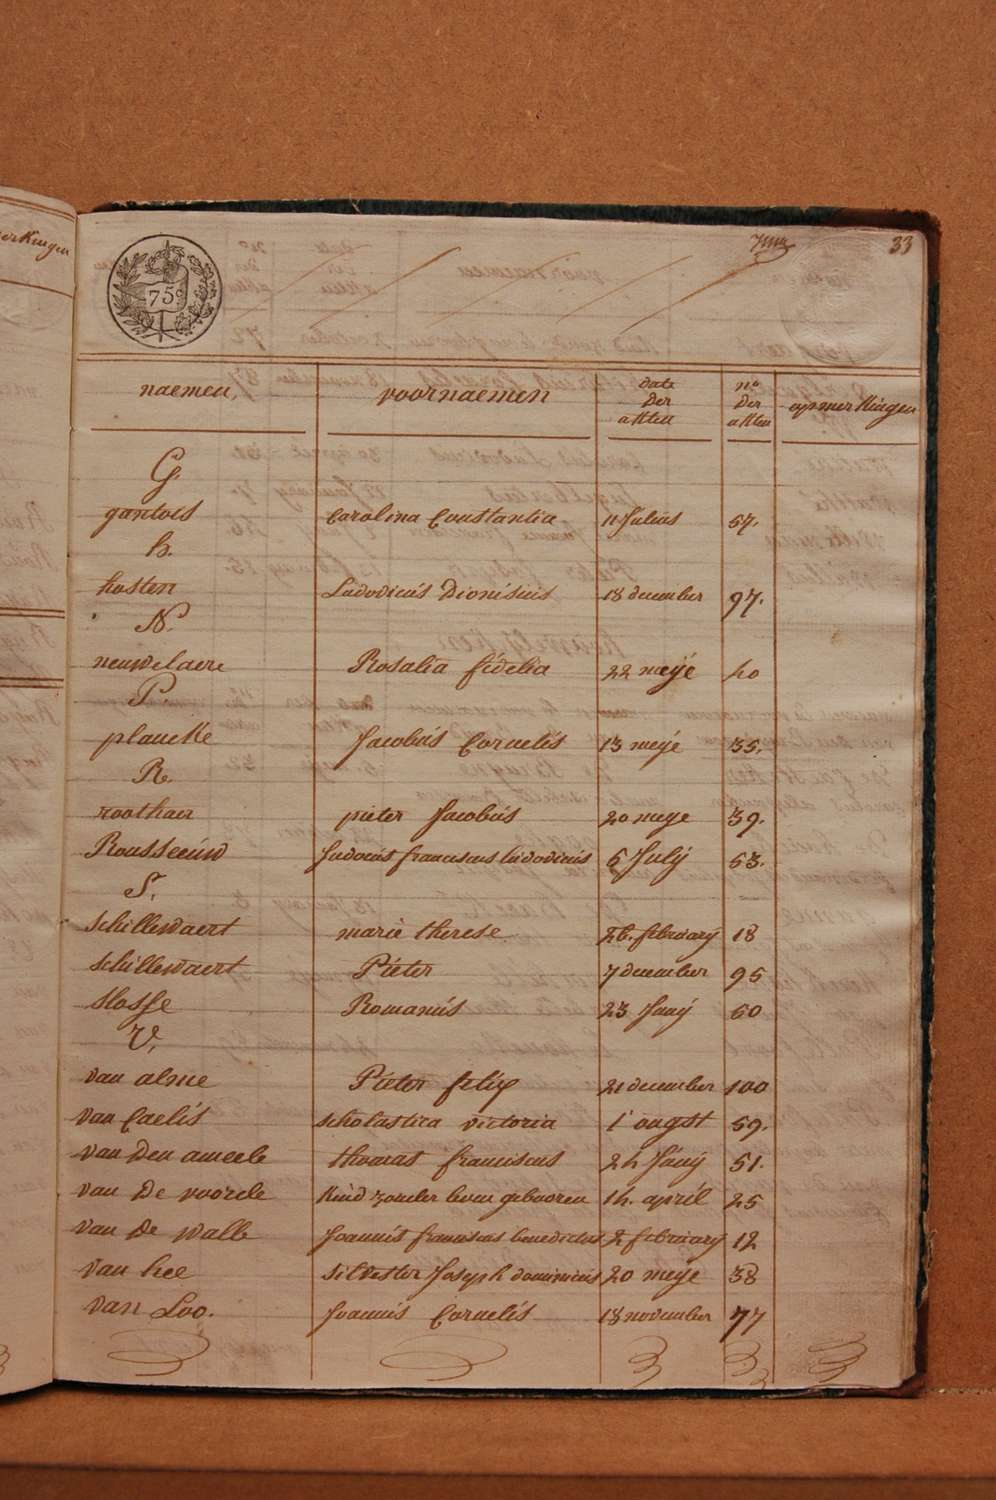 33
75c
naemen, voornaemen date der akten no der akten opmerkingen
G.
gantois Carolina Constantia 11 Julius 57.
h.
hosten Ludovicus Dionisius 18 december 97.
N.
neuwelaere Rosalia fidelia 22 meÿe 40
P.
planckke Jacobus Cornelis 13 meÿe 35.
R.
roothaer pieter Jacobus 20 meye 39.
Rousseeuw Judocus franciscus ludovicus 5 Julÿ 53.
S.
schillewaert marie therese 26. february 18
schillewaert Pieter 7 december 95
slosse Romanus 23 Junÿ 50
V.
van alme Pieter felix 21 december 100
van Caelis scholastica victoria 1 ougst 59.
van den ameele thomas franciscus 24 Junÿ 51.
van De voorde Kind zonder leven gebooren 14. april 25
van De walle Joannis franciscus benedictus 2 february 12
van hee silvester Joseph dominicus 20 meÿe 38
van Loo. Joannis Cornelis 18 november 77